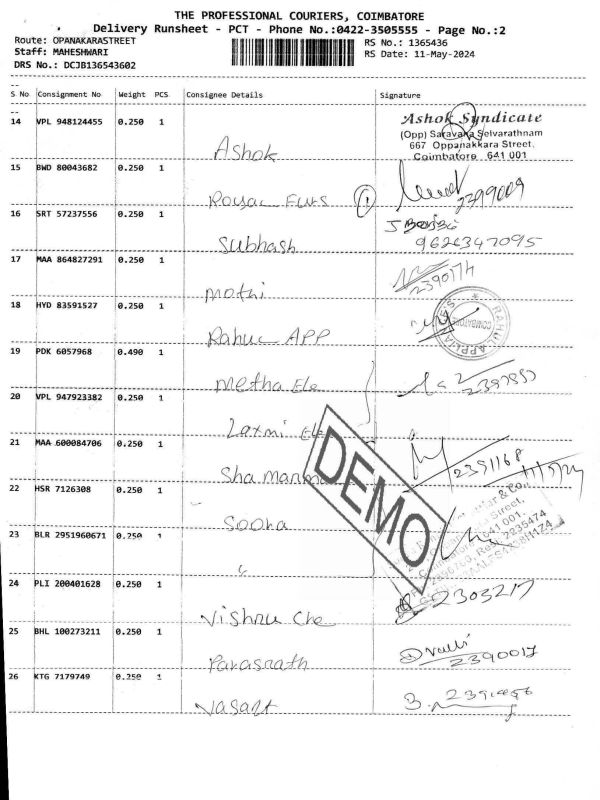 THE PROFESSIONAL COURIERS, COIMBATORE
Delivery Runsheet - PCT - Phone No.:0422-3505555 - Page No.:2
Route: OPANAKARASTREET
RS No.: 1365436
Staff: MAHESHWARI
RS Date: 11-May-2024
DRS No.: DCJB136543602
S No Consignment No Weight PCS Consignee Details Signature
14 VPL 948124455 0.250 1
Ashok
Ashok Syndicate
(Opp) Saravana Selvarathnam
667 Oppanakkara Street,
Coimbatore 641 001
15 BWD 80043682 0.250 1
Royal Furs 1
2399009
16 SRT 57237556 0.250 1
Subhash
9626347095
17 MAA 864827291 0.250 1
mothi
2390174
18 HYD 83591527 0.250 1
Rahul APP
COIMBATORE
19 PDK 6057968 0.490 1
metha Ele
20 VPL 947923382 0.250 1
Laxmi Ele
21 MAA 600084706 0.250 1
2391168
22 HSR 7126308 0.250 1
DEMO
23 BLR 2951960671 0.250 1
24 PLI 200401628 0.250 1
Vishnu Che
2303217
25 BHL 100273211 0.250 1
Parasnath
Valli
2390017
26 KTG 7179749 0.250 1
Vasant